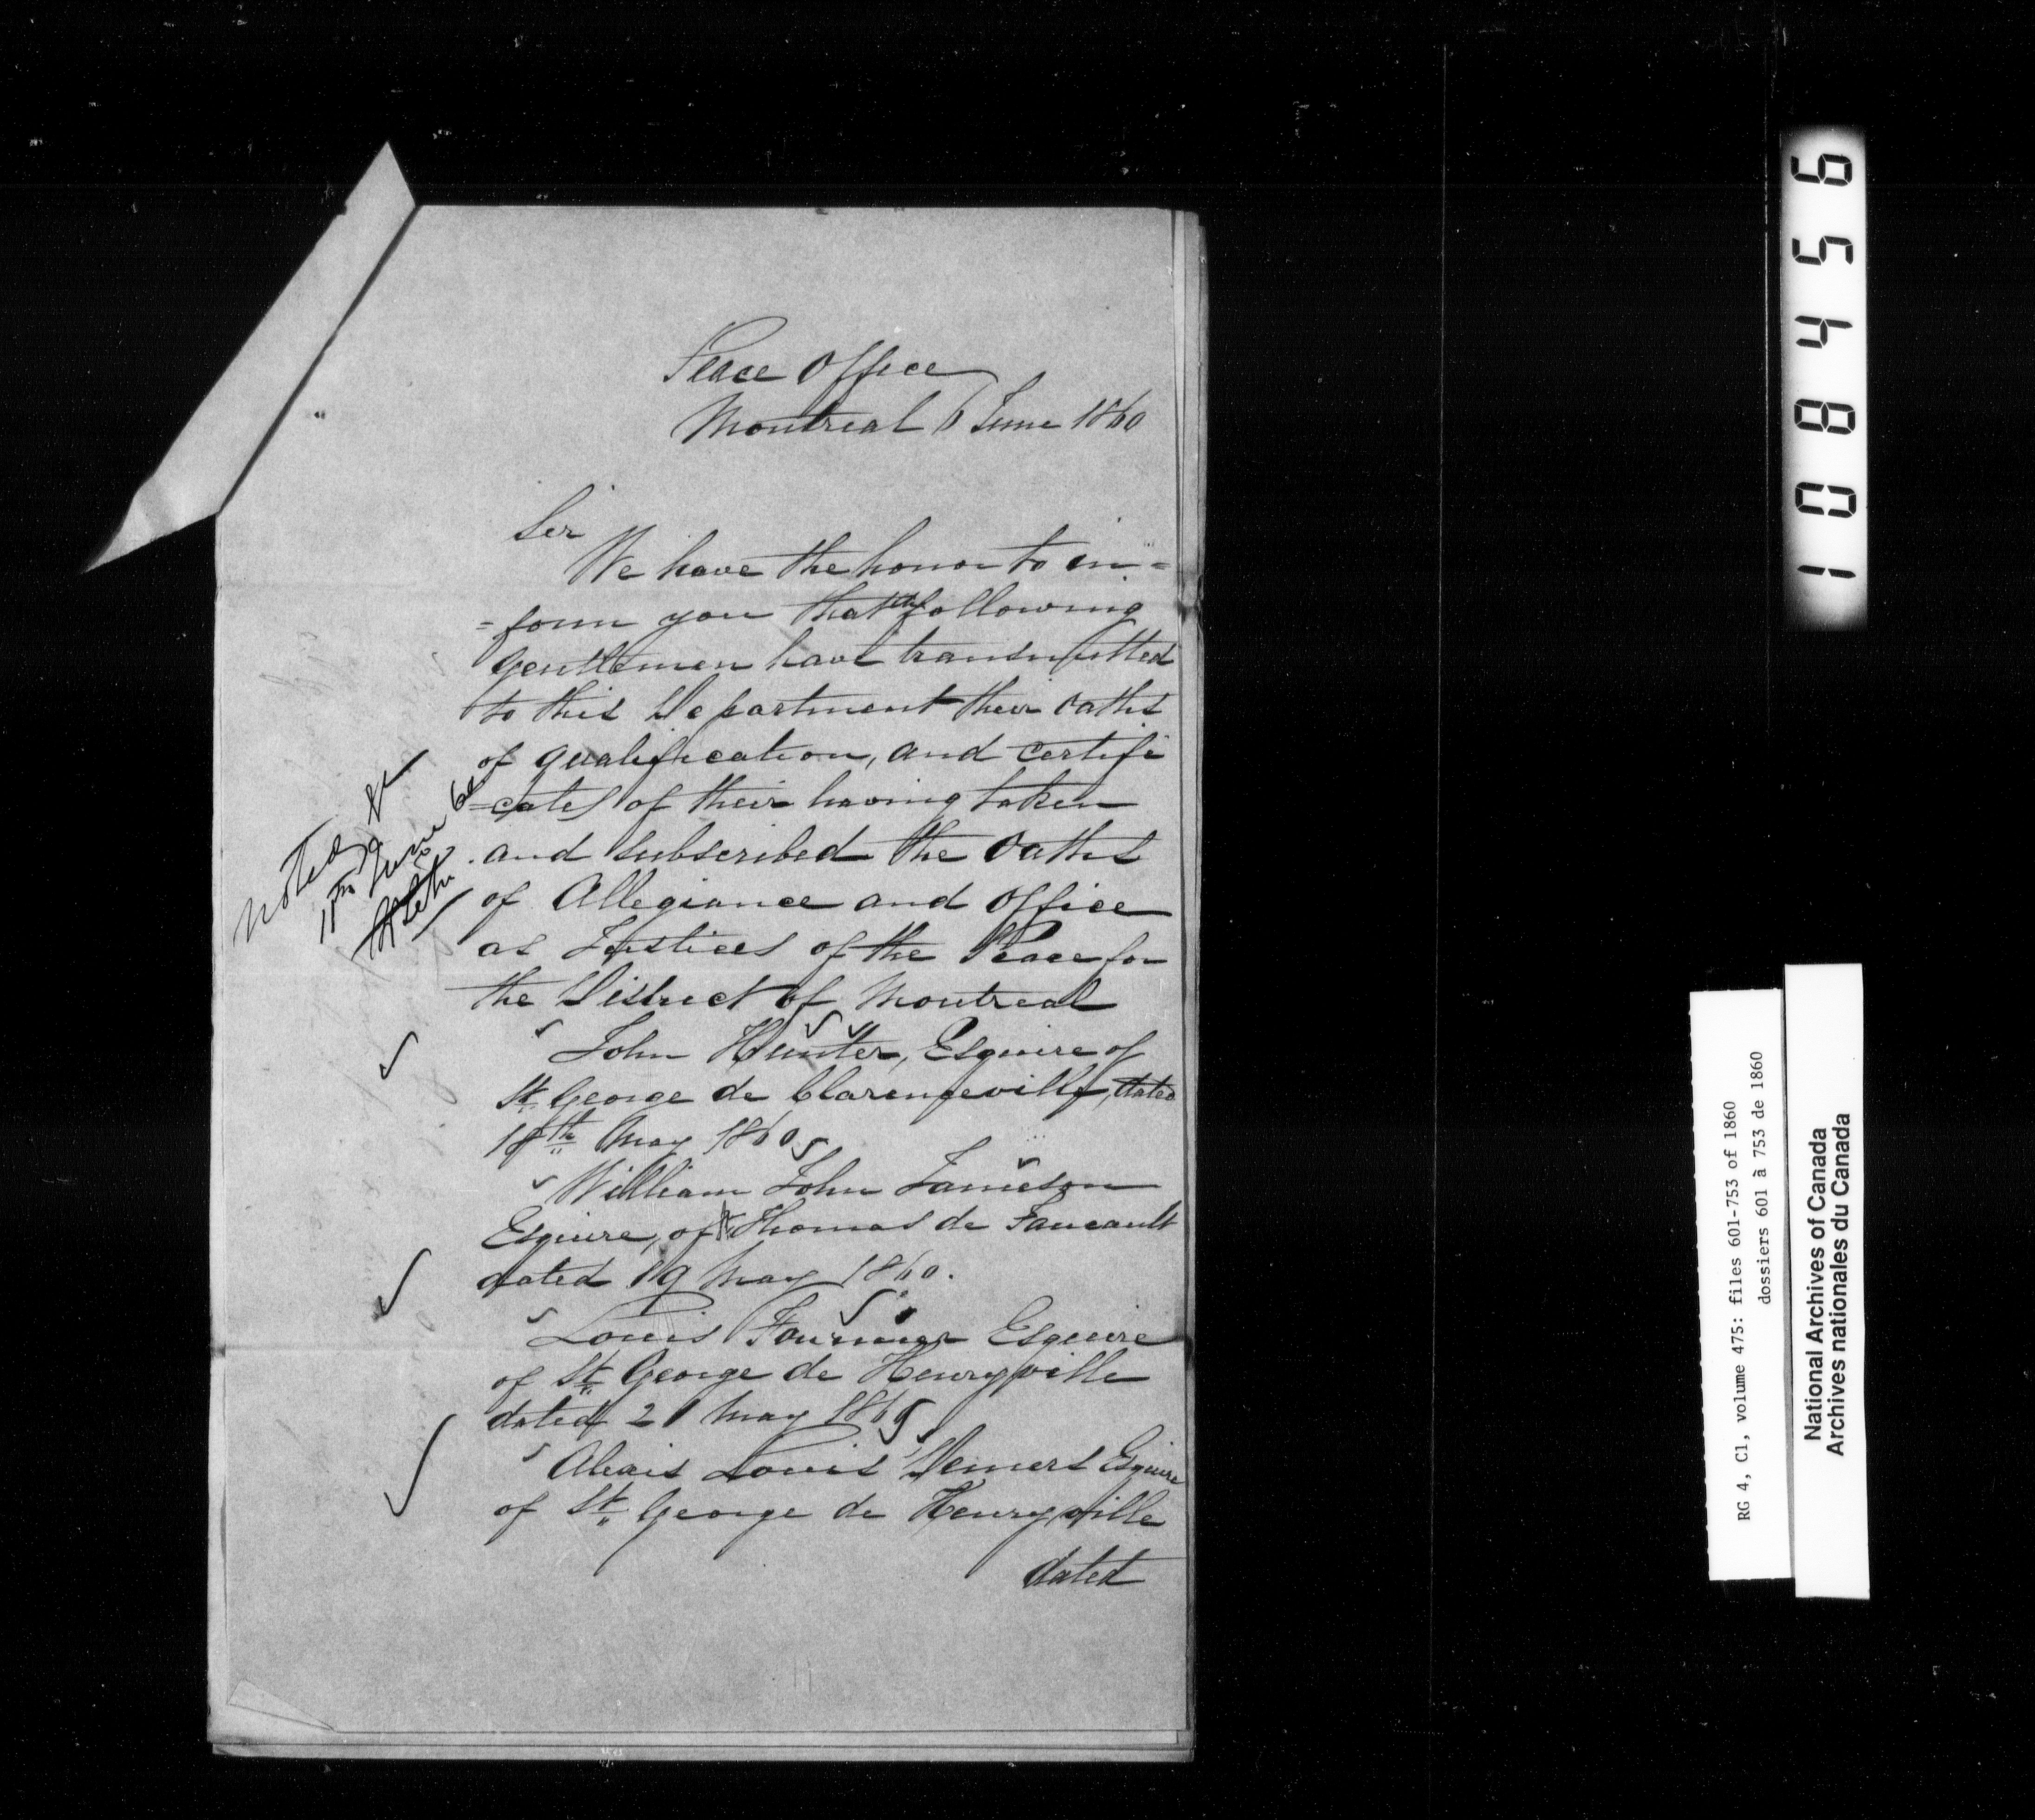 Peace Office
Montreal 6 June 1860
Sir
We have the honor to in=
=form you that the following
Gentlemen have transmitted
to this Department their oaths
of qualification, and certifi
=cates of their having taken
and subscribed the Oaths
of Allegiance and Office
as Justices of the Peace for
the District of Montreal
John Hunter, Esquire of
St. George de Clarenceville, dated
18th May 1860
William John Jameson
Esquire, of St Thomas de Foucault
dated 19 May 1860.
Louis Fournier Esquire
of St George de Henryville
dated 21 May 1860
Alexis Louis Demers Esquire
of St. George de Henryville
dated
Noted
11th June 60
108456
RG 4, C1, volume 475: files 601-753 of 1860
dossiers 601 à 753 de 1860
National Archives of Canada
Archives nationales du Canada